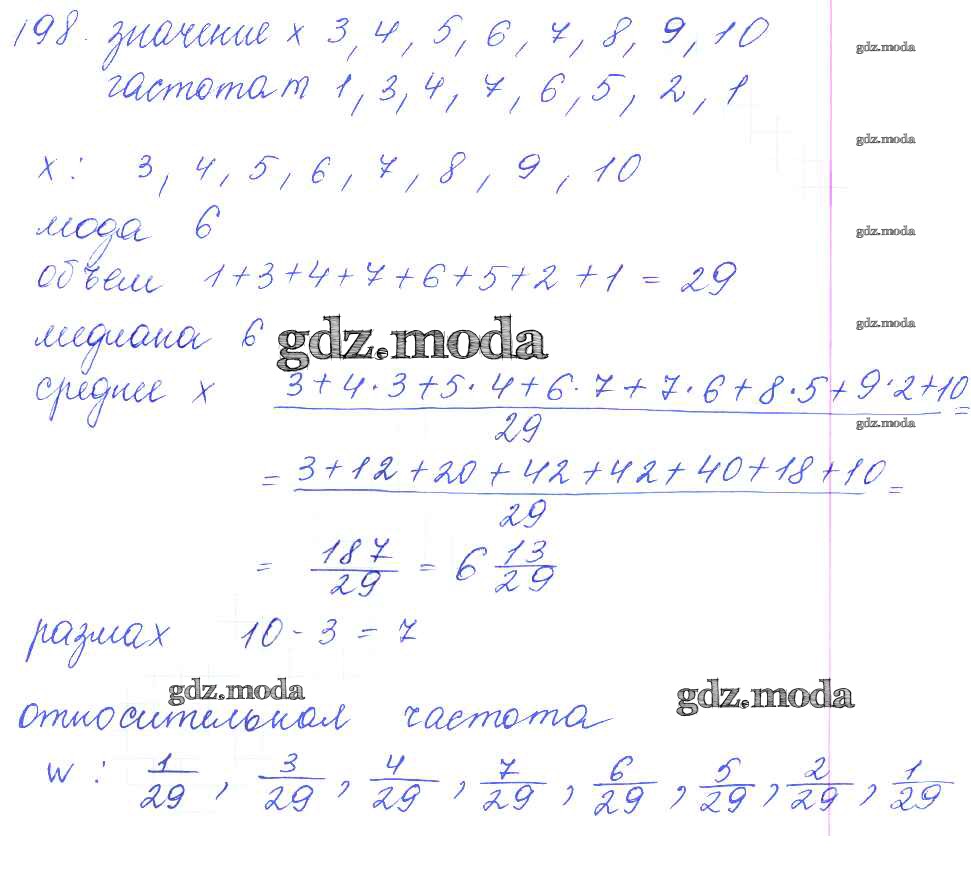 198. значение x 3, 4, 5, 6, 7, 8, 9, 10
gdz.moda
частота m 1, 3, 4, 7, 6, 5, 2, 1
gdz.moda
x: 3, 4, 5, 6, 7, 8, 9, 10
мода 6
gdz.moda
объем 1+3+4+7+6+5+2+1 = 29
медиана 6
gdz.moda
gdz.moda
среднее x 3+4·3+5·4+6·7+7·6+8·5+9·2+10 =
29
gdz.moda
= 3+12+20+42+42+40+18+10 =
29
= 187/29 = 6 13/29
размах 10 - 3 = 7
gdz.moda
gdz.moda
относительная частота
w: 1/29, 3/29, 4/29, 7/29, 6/29, 5/29, 2/29, 1/29